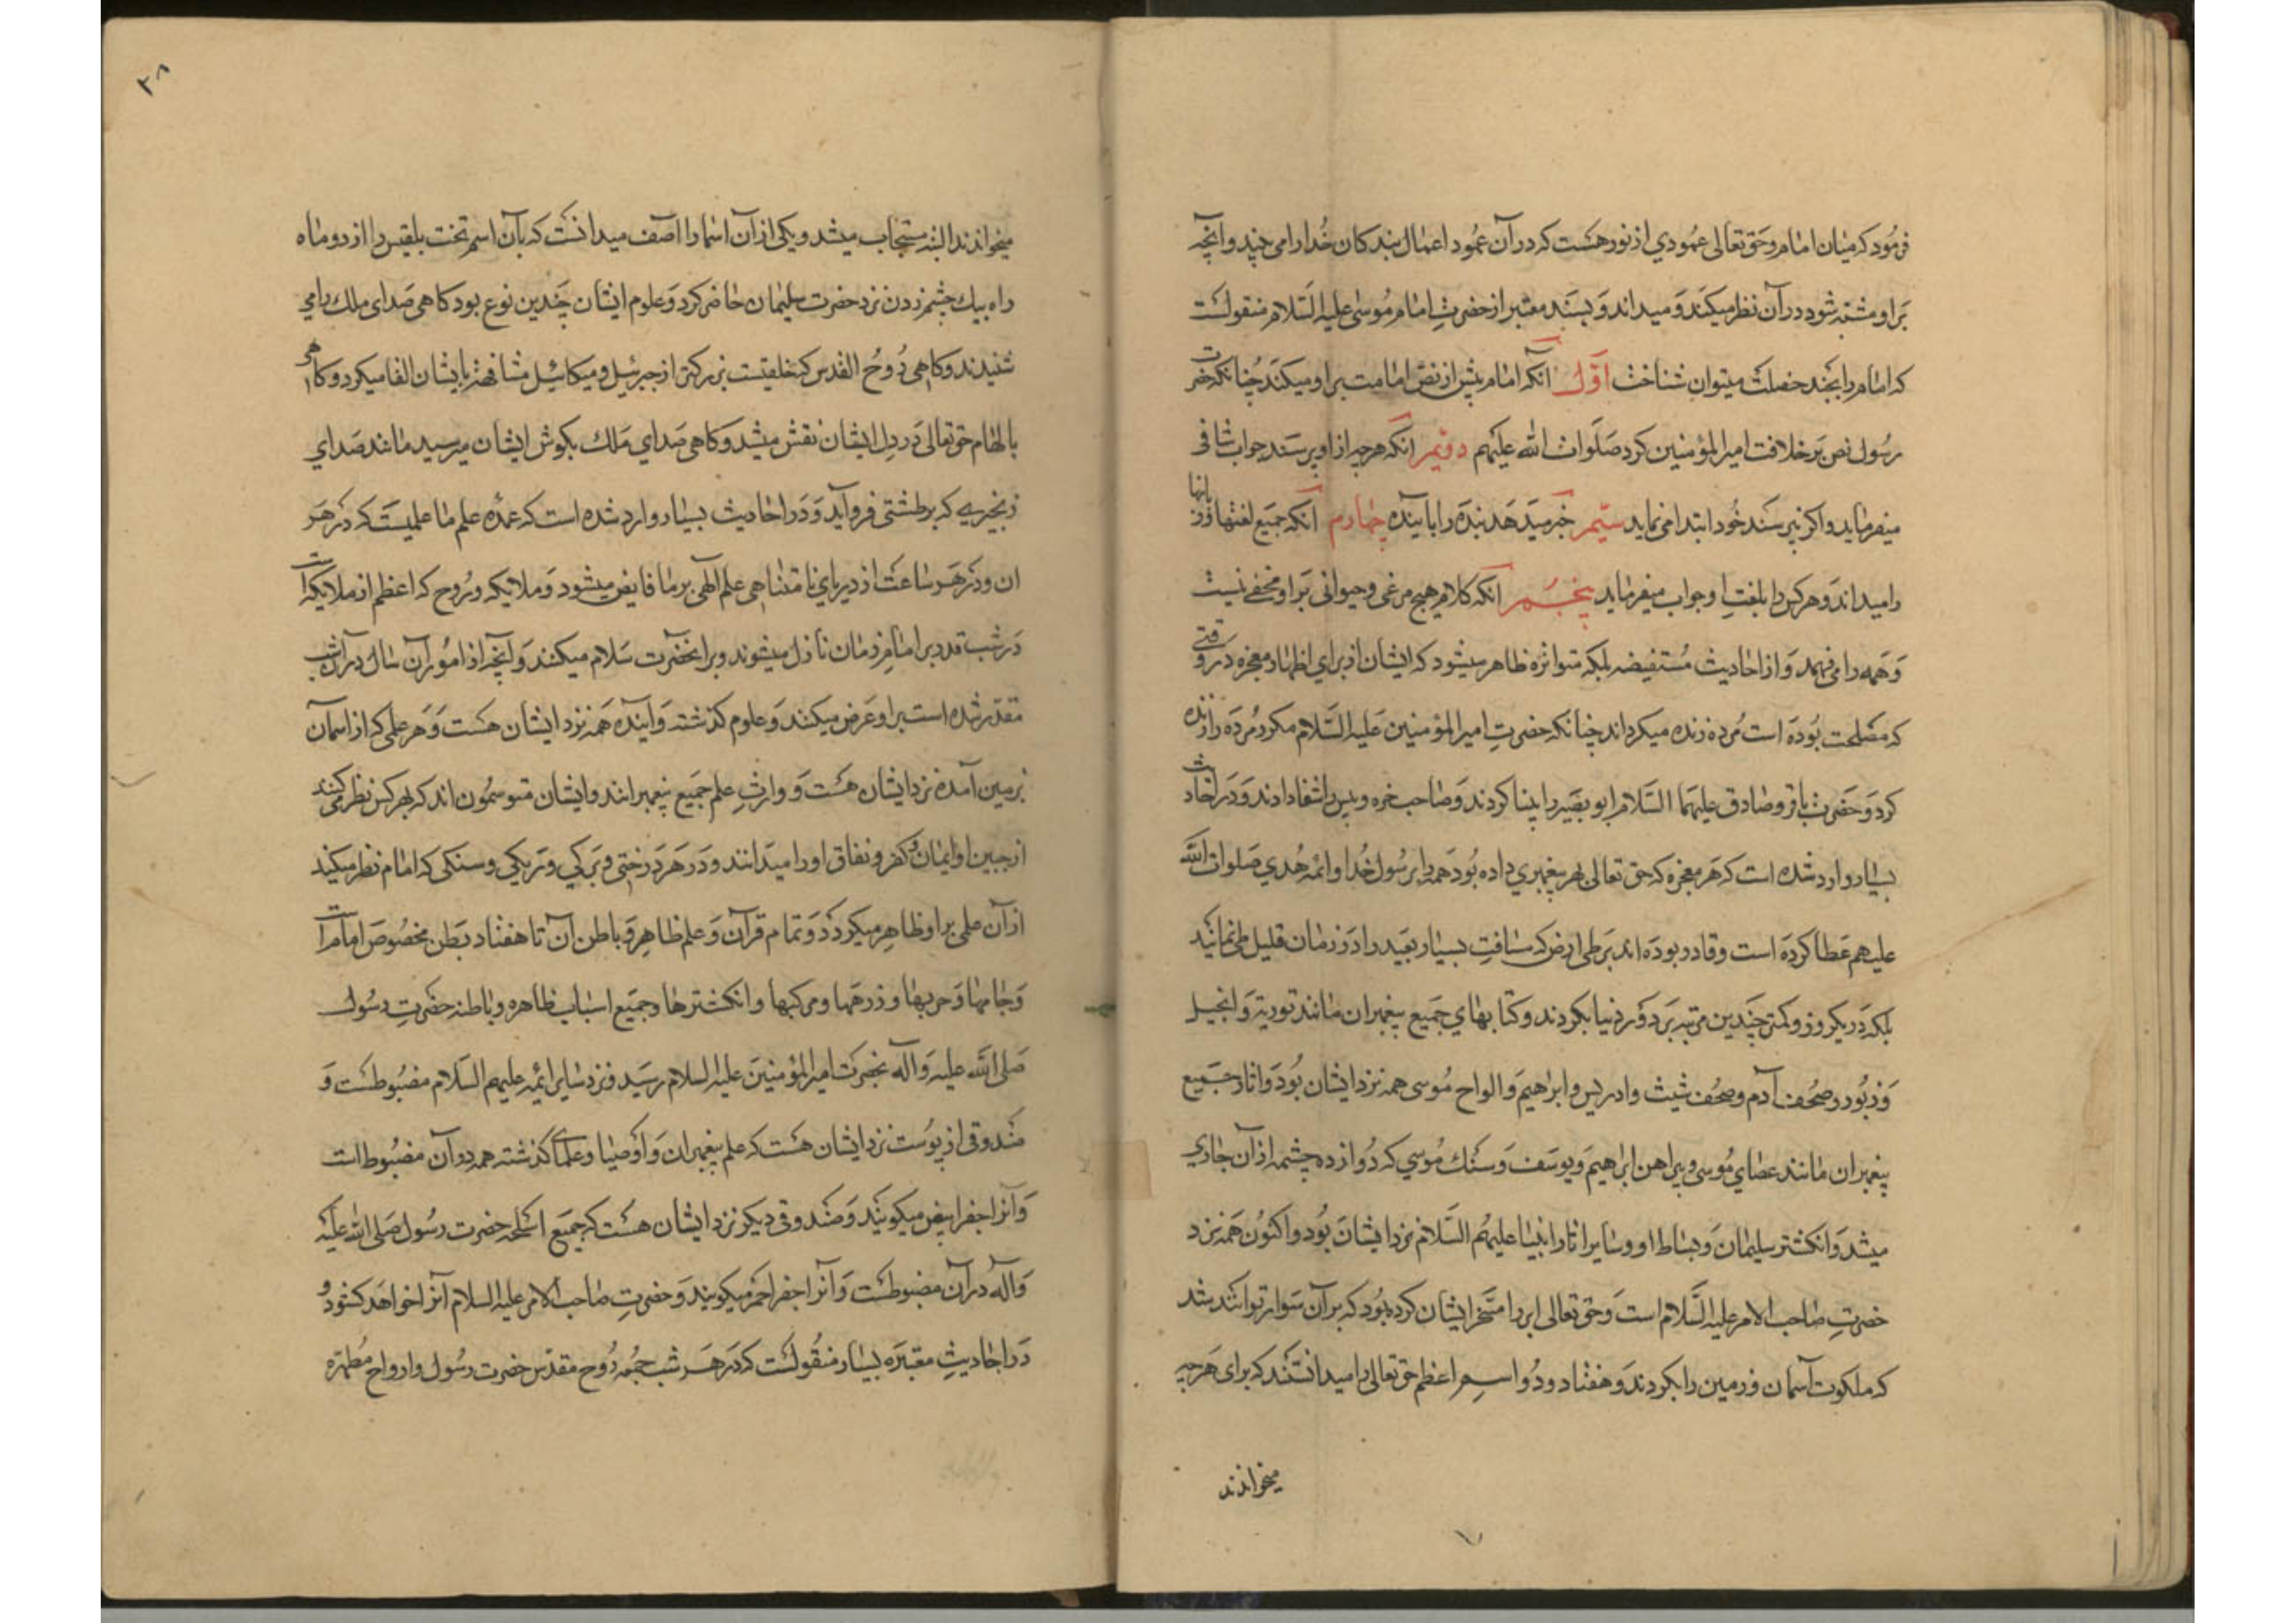 فرمود که میان امام و حق تعالی عمودی از نور هست که در آن عمود اعمال بندکان خدا را می بیند و آنچه
بر او مشتبه شود در آن نظر میکند و میداند و بسند معتبر از حضرت امام موسی علیه السلام منقولست
که امام را بچند خصلت میتوان شناخت اول آنکه امام پیش از نص امامت بر او میکند چنانکه حضرت
رسول نص بر خلافت امیر المؤمنین کرد صلوات الله علیهم دویم آنکه هرچه از او پرسند جواب شافی
میفرماید و اکر نپرسند خود ابتدا می نماید سیم خبر میدهد بنده را بآینده چهارم آنکه جمیع لغتها و زبانها
را میداند و هر کس را بلغت او جواب میفرماید پنجم آنکه کلام هیچ مرغی و حیوانی بر او مخفی نیست
و همه را می فهمد و از احادیث مستفیضه بلکه متواتره ظاهر میشود که ایشان از برای اظهار معجزه در وقتی
که مصلحت بوده است مرده زنده میکرداند چنانکه حضرت امیر المؤمنین علیه السلام مکرر مرده را زنده
کرد و حضرت باقر و صادق علیهما السلام ابو بصیر را بینا کردند و صاحب خره و پیس را شفا دادند و در احادیث
بسیار وارد شده است که هر معجزه که حق تعالی بهر پیغمبری داده بود همه را برسول خدا و ائمه هدی صلوات الله
علیهم عطا کرده است و قادر بوده اند بر طی ارض که مسافت بسیار بعید را در زمان قلیل طی نمایند
بلکه در یکروز و کمتر چندین مرتبه بر دور دنیا بکردند و کتابهای جمیع پیغمبران مانند توریة و انجیل
و زبور و صحف آدم و صحف شیث و ادریس و ابراهیم و الواح موسی همه نزد ایشان بود و آثار جمیع
پیغمبران مانند عصای موسی و پیراهن ابراهیم و یوسف و سنک موسی که دوازده چشمه از آن جاری
میشد و انکشتر سلیمان و بساط او و سایر اثار انبیا علیهم السلام نزد ایشان بود و اکنون همه نزد
حضرت صاحب الامر علیه السلام است و حق تعالی ابر را مسخر ایشان کرده بود که بر آن سوار توانند شد
که ملکوت آسمان و زمین را بکردند و هفتاد و دو اسم اعظم حق تعالی را میدانستند که برای هرچه
میخواندند
۳۸
میخواندند البته مستجاب میشد و یکی از آن اسما را آصف میدانست که بآن اسم تخت بلقیس را از دو ماه
راه بیک چشم زدن نزد حضرت سلیمان حاضر کرد و علوم ایشان چندین نوع بود کاهی صدای ملک را می
شنیدند و کاهی روح القدس که خلقیست بزرکتر از جبرئیل و میکائیل مشافهة بایشان القا میکرد و کاهی
بالهام حق تعالی در دل ایشان نقش میشد و کاهی صدای ملک بکوش ایشان میرسید مانند صدای
زنجیری که بر طشتی فرو آید و در احادیث بسیار وارد شده است که عمده علم ما علمیست که در هر
ان و در هر ساعت از دریای نامتناهی علم الهی بر ما فایض میشود و ملایکه و روح که اعظم از ملایکه است
در شب قدر بر امام زمان نازل میشوند و بر آنحضرت سلام میکنند و آنچه از امور آن سال در آن شب
مقدر شده است بر او عرض میکنند و علوم کذشته و آینده همه نزد ایشان هست و هر علمی که از آسمان
بزمین آمده نزد ایشان هست و وارث علم جمیع پیغمبرانند و ایشان متوسمون اند که بهر کس نظر می کنند
از جبین او ایمان و کفر و نفاق او را میدانند و در هر درختی و برکی و ریکی و سنکی که امام نظر میکند
از آن علمی بر او ظاهر میکردد و تمام قرآن و علم ظاهر و باطن آن تا هفتاد بطن مخصوص امام است
و جامها و حربها و زرهها و مرکبها و انکشترها و جمیع اسباب ظاهره و باطنه حضرت رسول
صلی الله علیه و آله بحضرت امیر المؤمنین علیه السلام رسید و نزد سایر ائمه علیهم السلام مضبوطست و
صندوقی از پوست نزد ایشان هست که علم پیغمبران و اوصیا و علمای کذشته همه در آن مضبوط است
و آنرا جفر ابیض میکویند و صندوقی دیکر نزد ایشان هست که جمیع اسلحه حضرت رسول صلی الله علیه
و آله در آن مضبوطست و آنرا جفر احمر میکویند و حضرت صاحب الامر علیه السلام آنرا خواهد کشود و
در احادیث معتبره بسیار منقولست که در هر شب جمعه روح مقدس حضرت رسول و ارواح مطهره